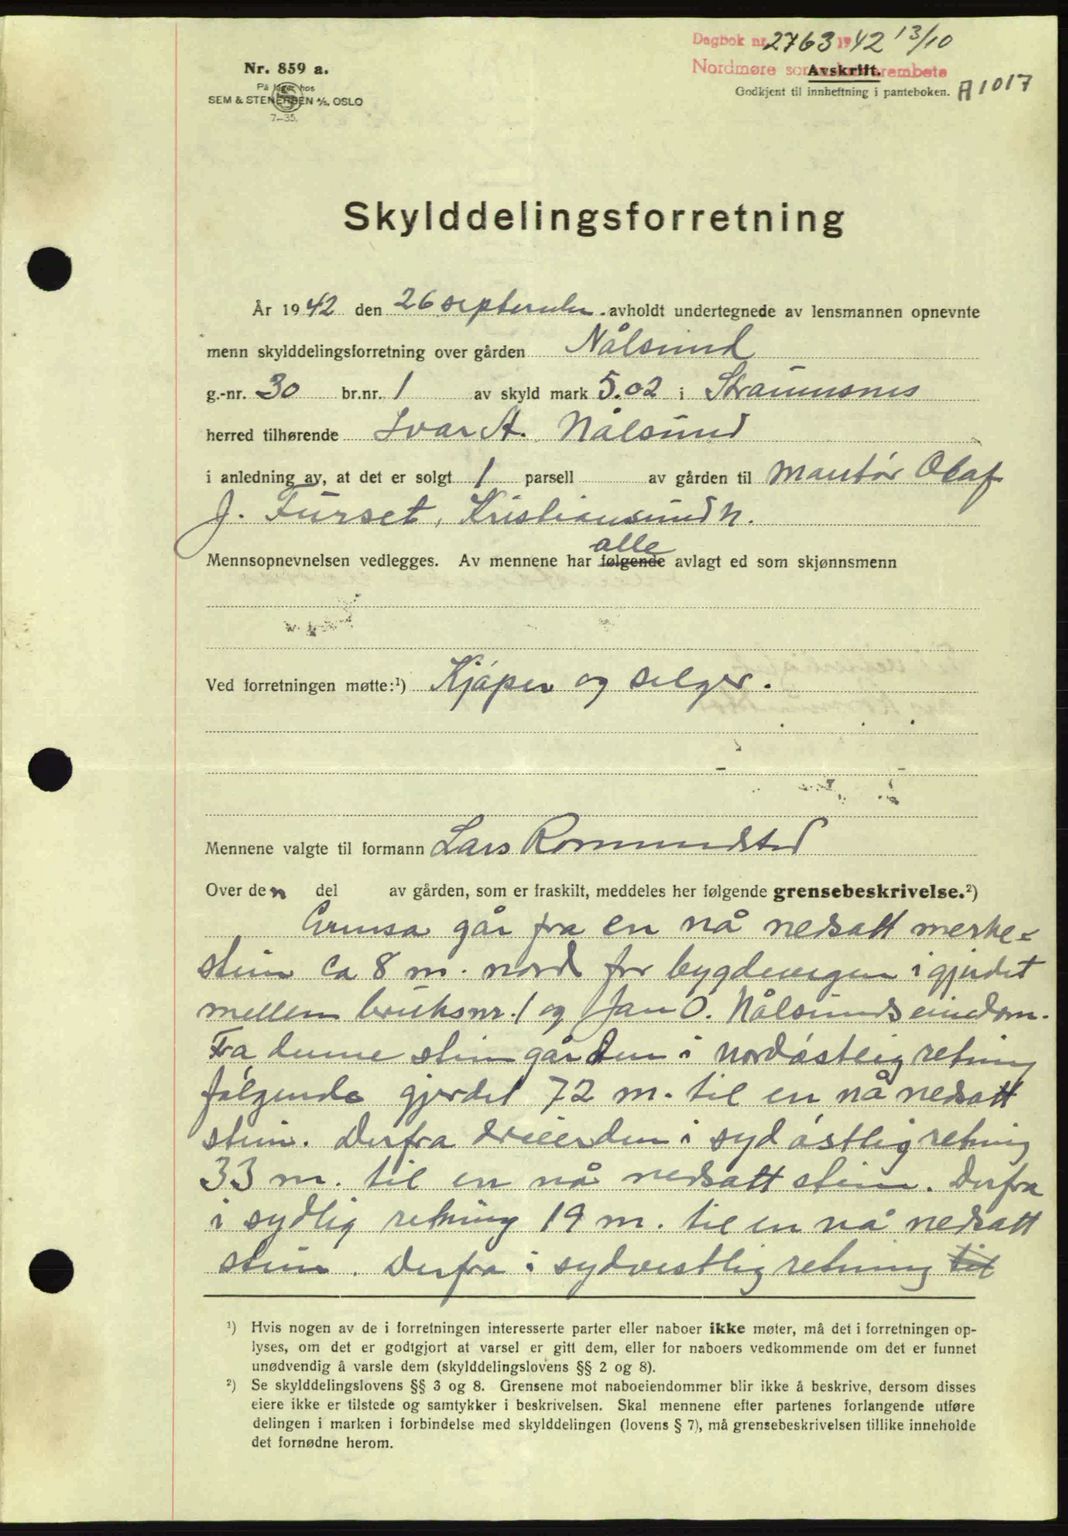 Dagbok nr. 2763 1942 13/10
Nordmøre sorenskriverembete
Avskrift.
Godkjent til innheftning i panteboken. A1017
Nr. 859 a.
På lager hos
SEM & STENERSEN A/S, OSLO
7–35.
Skylddelingsforretning
År 1942 den 26 september avholdt undertegnede av lensmannen opnevnte
menn skylddelingsforretning over gården Nålsund
g.-nr. 30 br.nr. 1 av skyld mark 5.02 i Straumsnes
herred tilhørende Ivar A. Nålsund
i anledning av, at det er solgt 1 parsell av gården til Montør Olaf
J. Furset, Kristiansund N.
alle
Mennsopnevnelsen vedlegges. Av mennene har følgende avlagt ed som skjønnsmenn
Ved forretningen møtte:¹) Kjøper og selger.
Mennene valgte til formann Lars Romundstad
Over den del av gården, som er fraskilt, meddeles her følgende grensebeskrivelse.²)
Grensa går fra en nå nedsatt merke=
stein ca 8 m. nord for bygdeveigen i gjerdet
mellem bruksnr. 1 og Jan O. Nålsunds eiendom.
Fra denne stein går den i nordøstlig retning
følgende gjerdet 72 m. til en nå nedsatt
stein. Derfra dreier den i sydøstlig retning
33 m. til en nå nedsatt stein. Derfra
i sydlig retning 19 m. til en nå nedsatt
stein. Derfra i sydvestlig retning til
¹) Hvis nogen av de i forretningen interesserte parter eller naboer ikke møter, må det i forretningen op-
lyses, om det er godtgjort at varsel er gitt dem, eller for naboers vedkommende om det er funnet
unødvendig å varsle dem (skylddelingslovens §§ 2 og 8).
²) Se skylddelingslovens §§ 3 og 8. Grensene mot naboeiendommer blir ikke å beskrive, dersom disses
eiere ikke er tilstede og samtykker i beskrivelsen. Skal mennene efter partenes forlangende utføre
delingen i marken i forbindelse med skylddelingen (lovens § 7), må grensebeskrivelsen tillike inneholde
det fornødne herom.